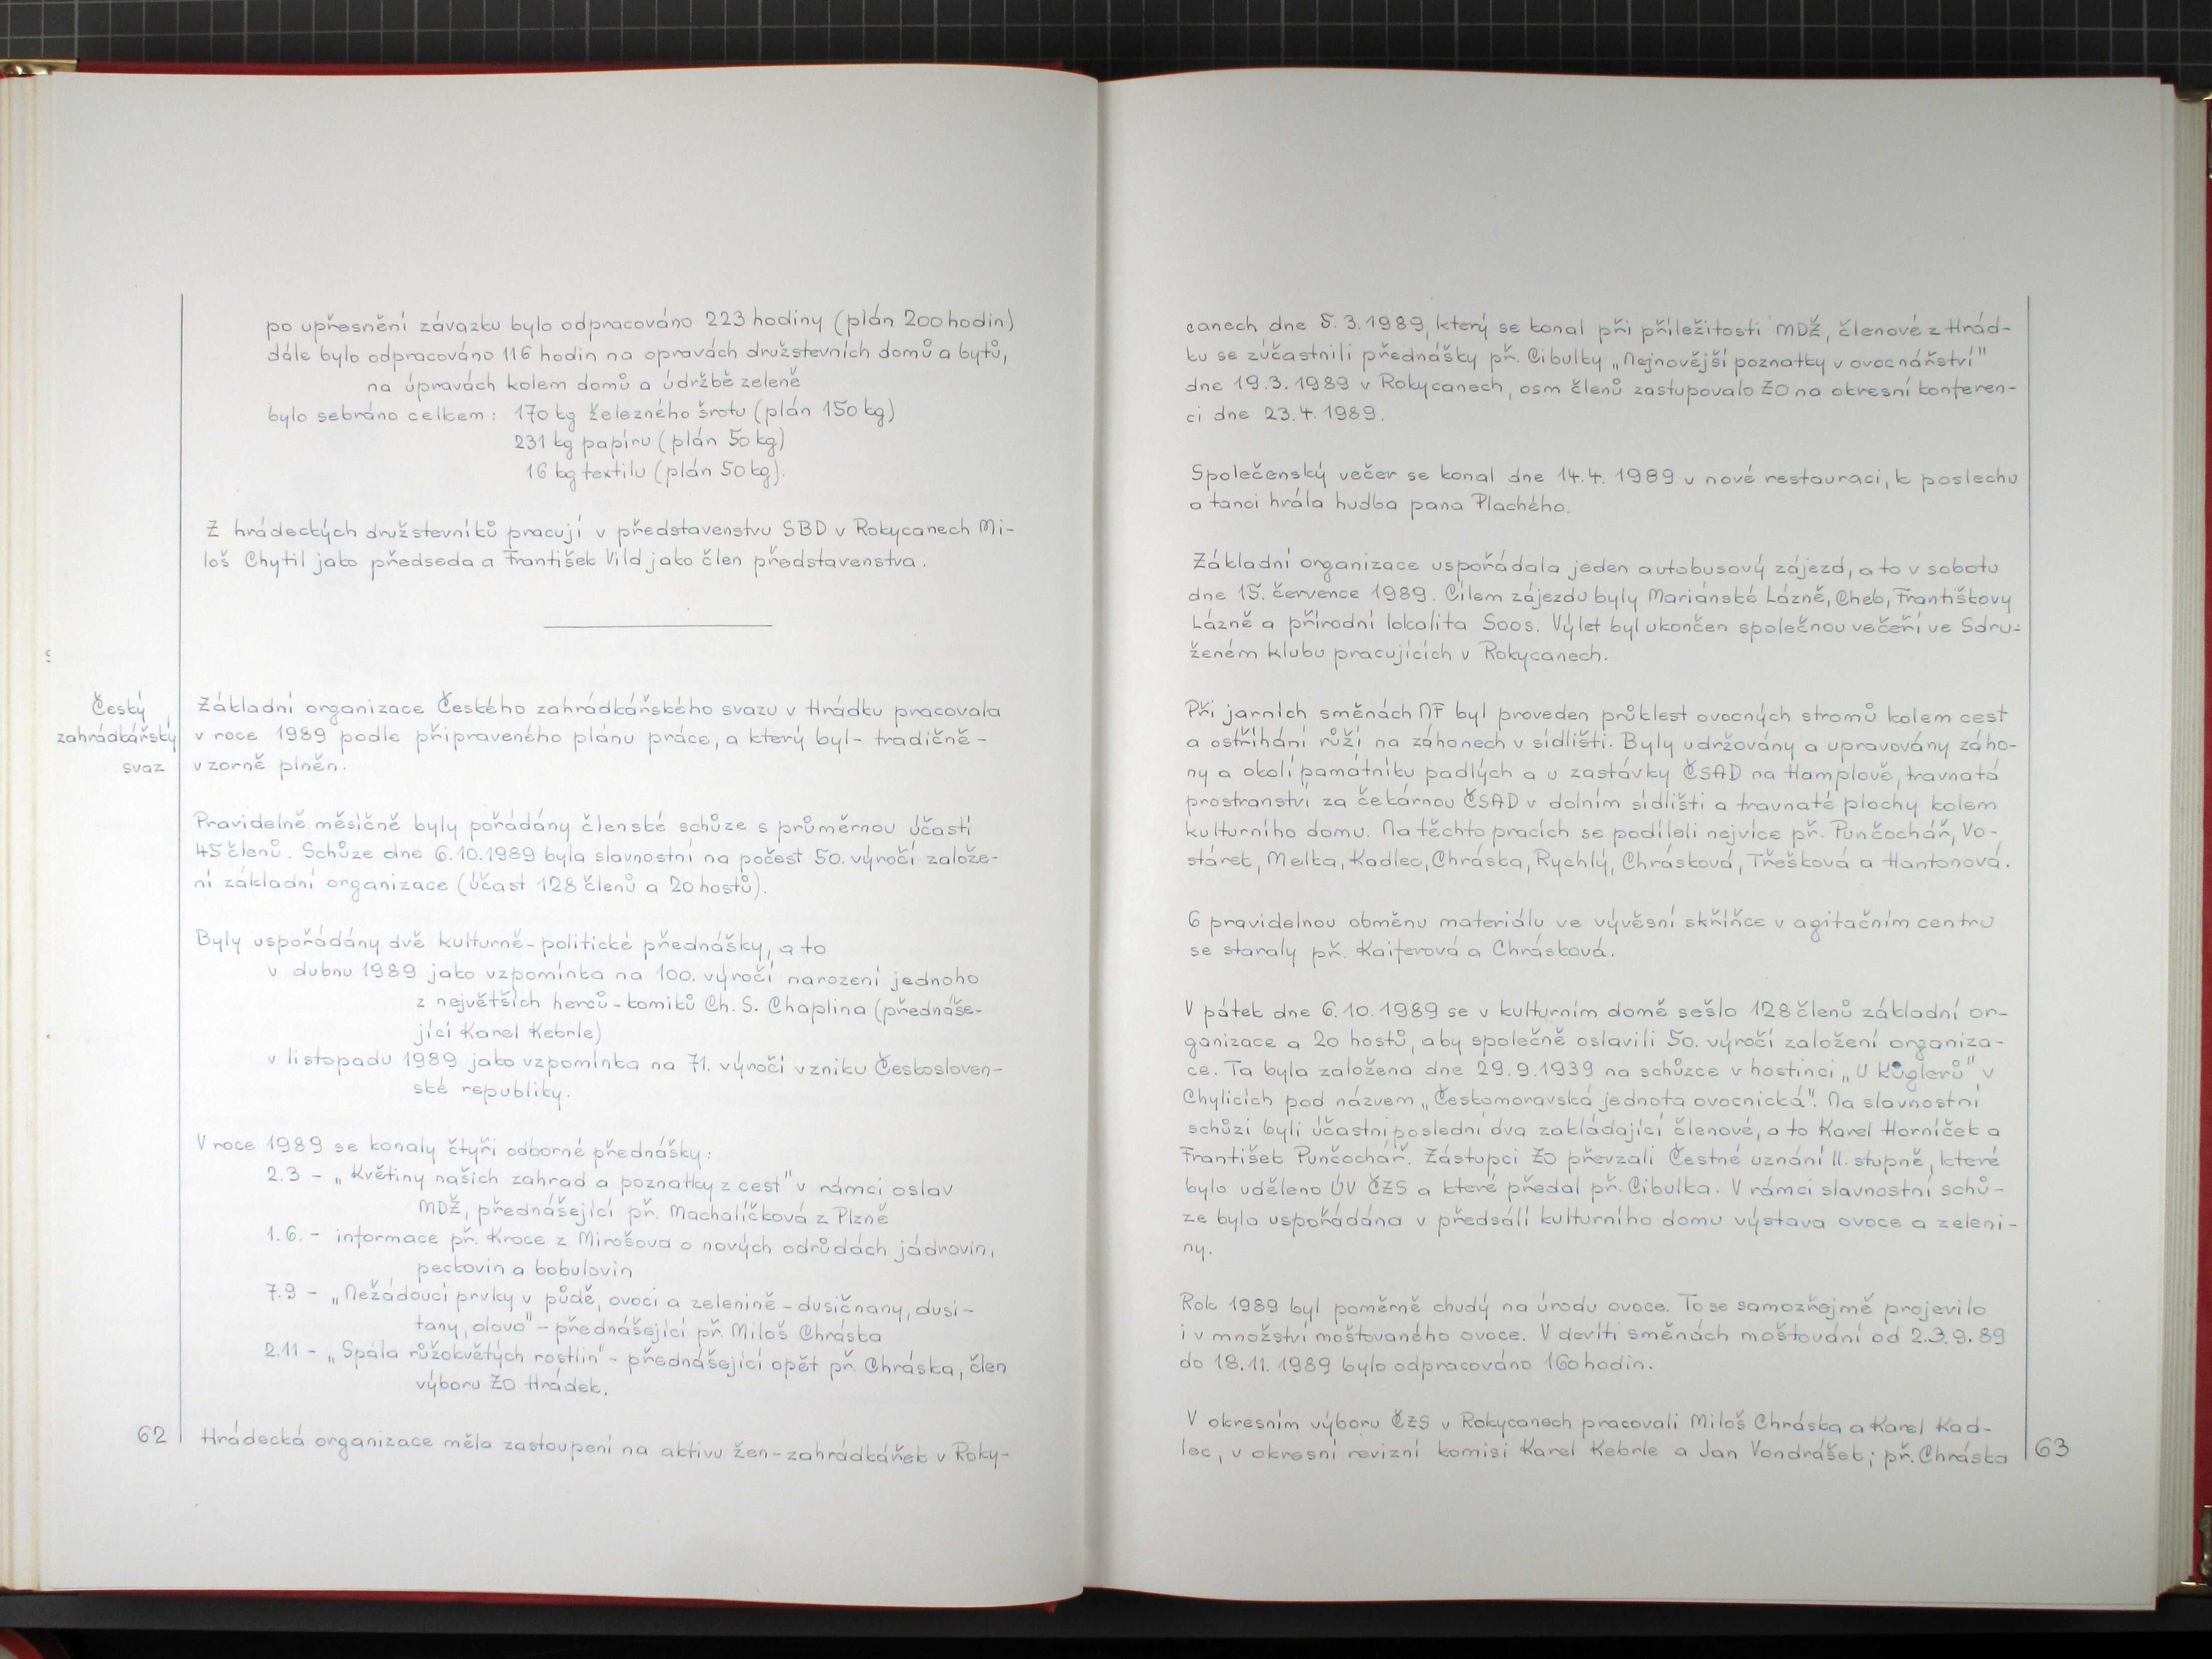 po upřesnění závazku bylo odpracováno 223 hodiny (plán 200 hodin)
dále bylo odpracováno 116 hodin na opravách družstevních domů a bytů,
na úpravách kolem domů a údržbě zeleně
bylo sebráno celkem: 170 kg železného šrotu (plán 150 kg)
231 kg papíru (plán 50 kg)
16 kg textilu (plán 50 kg).
Z hrádeckých družstevníků pracují v představenstvu SBD v Rokycanech Mi-
loš Chytil jako předseda a František Vild jako člen představenstva.
Český
zahrádkářský
svaz
Základní organizace Českého zahrádkářského svazu v Hrádku pracovala
v roce 1989 podle připraveného plánu práce, a který byl - tradičně -
vzorně plněn.
Pravidelně měsíčně byly pořádány členské schůze s průměrnou účastí
45 členů. Schůze dne 6.10.1989 byla slavnostní na počest 50. výročí založe-
ní základní organizace (účast 128 členů a 20 hostů).
Byly uspořádány dvě kulturně-politické přednášky, a to
v dubnu 1989 jako vzpomínka na 100. výročí narození jednoho
z největších herců-komiků Ch. S. Chaplina (přednáše-
jící Karel Kebrle)
v listopadu 1989 jako vzpomínka na 71. výročí vzniku Českosloven-
ské republiky.
V roce 1989 se konaly čtyři odborné přednášky:
2.3 - „Květiny našich zahrad a poznatky z cest" v rámci oslav
MDŽ, přednášející př. Machalíčková z Plzně
1.6. - informace př. Kroce z Mirošova o nových odrůdách jádrovin,
peckovin a bobulovin
7.9 - „Nežádoucí prvky v půdě, ovoci a zelenině - dusičnany, dusi-
tany, olovo" - přednášející př. Miloš Chráska
2.11 - „Spála růžokvětých rostlin" - přednášející opět př. Chráska, člen
výboru ZO Hrádek.
62 Hrádecká organizace měla zastoupení na aktivu žen-zahrádkářek v Roky-
canech dne 5.3.1989, který se konal při příležitosti MDŽ, členové z Hrád-
ku se zúčastnili přednášky př. Cibulky „Nejnovější poznatky v ovocnářství"
dne 19.3.1989 v Rokycanech, osm členů zastupovalo ZO na okresní konferen-
ci dne 23.4.1989.
Společenský večer se konal dne 14.4.1989 v nové restauraci, k poslechu
a tanci hrála hudba pana Plachého.
Základní organizace uspořádala jeden autobusový zájezd, a to v sobotu
dne 15. července 1989. Cílem zájezdu byly Mariánské Lázně, Cheb, Františkovy
Lázně a přírodní lokalita Soos. Výlet byl ukončen společnou večeří ve Sdru-
ženém klubu pracujících v Rokycanech.
Při jarních směnách NF byl proveden průklest ovocných stromů kolem cest
a ostříhání růží na záhonech v sídlišti. Byly udržovány a upravovány záho-
ny a okolí památníku padlých a u zastávky ČSAD na Hamplově, travnatá
prostranství za čekárnou ČSAD v dolním sídlišti a travnaté plochy kolem
kulturního domu. Na těchto pracích se podíleli nejvíce př. Punčochář, Vo-
stárek, Melka, Kadlec, Chráska, Rychlý, Chrásková, Třešková a Hantonová.
O pravidelnou obměnu materiálu ve vývěsní skříňce v agitačním centru
se staraly př. Kaiferová a Chrásková.
V pátek dne 6.10.1989 se v kulturním domě sešlo 128 členů základní or-
ganizace a 20 hostů, aby společně oslavili 50. výročí založení organiza-
ce. Ta byla založena dne 29.9.1939 na schůzce v hostinci „U Kůglerů" v
Chylicích pod názvem „Českomoravská jednota ovocnická". Na slavnostní
schůzi byli účastni poslední dva zakládající členové, a to Karel Horníček a
František Punčochář. Zástupci ZO převzali Čestné uznání II. stupně, které
bylo uděleno ÚV ČZS a které předal př. Cibulka. V rámci slavnostní schů-
ze byla uspořádána v předsálí kulturního domu výstava ovoce a zeleni-
ny.
Rok 1989 byl poměrně chudý na úrodu ovoce. To se samozřejmě projevilo
i v množství moštovaného ovoce. V devíti směnách moštování od 2.3.9.89
do 18.11.1989 bylo odpracováno 160 hodin.
V okresním výboru ČZS v Rokycanech pracovali Miloš Chráska a Karel Kad-
lec, v okresní revizní komisi Karel Kebrle a Jan Vondrášek; př. Chráska 63